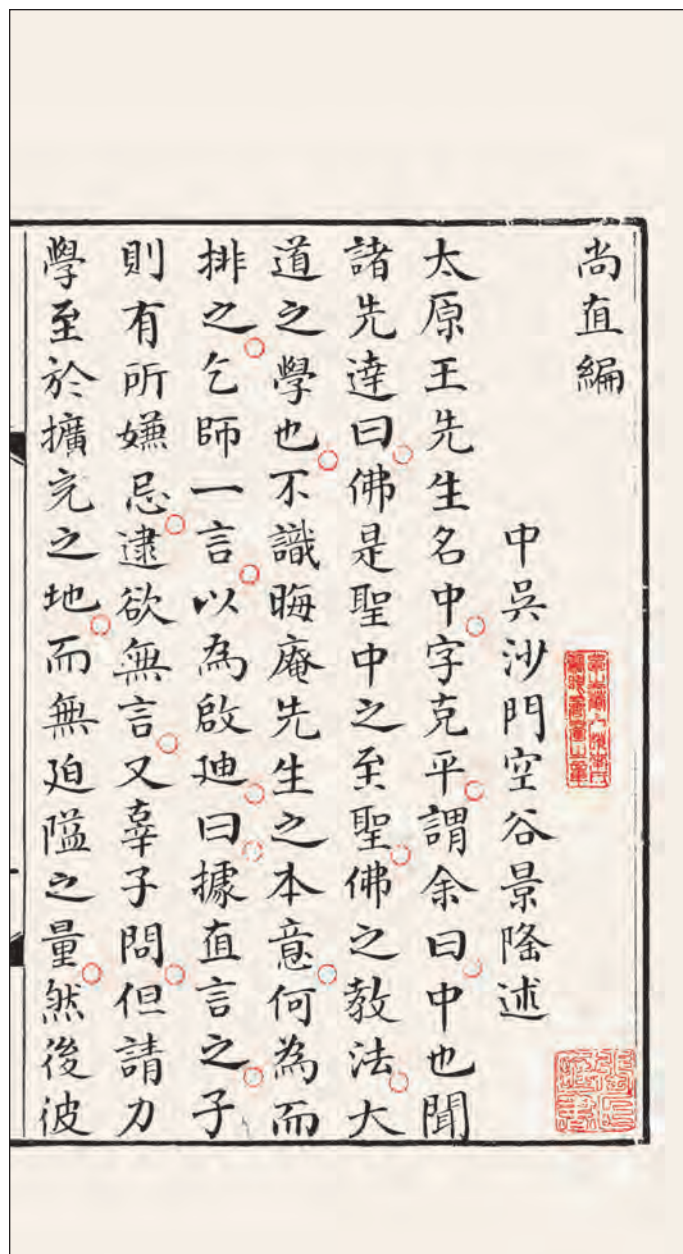 尚直編
中吳沙門空谷景隆述
太原王先生名中字克平謂余曰中也聞
諸先達曰佛是聖中之至聖佛之教法大
道之學也不識晦庵先生之本意何為而
排之乞師一言以為啟迪曰據直言之子
則有所嫌忌逮欲無言又辜子問但請力
學至於擴充之地而無廹隘之量然後彼